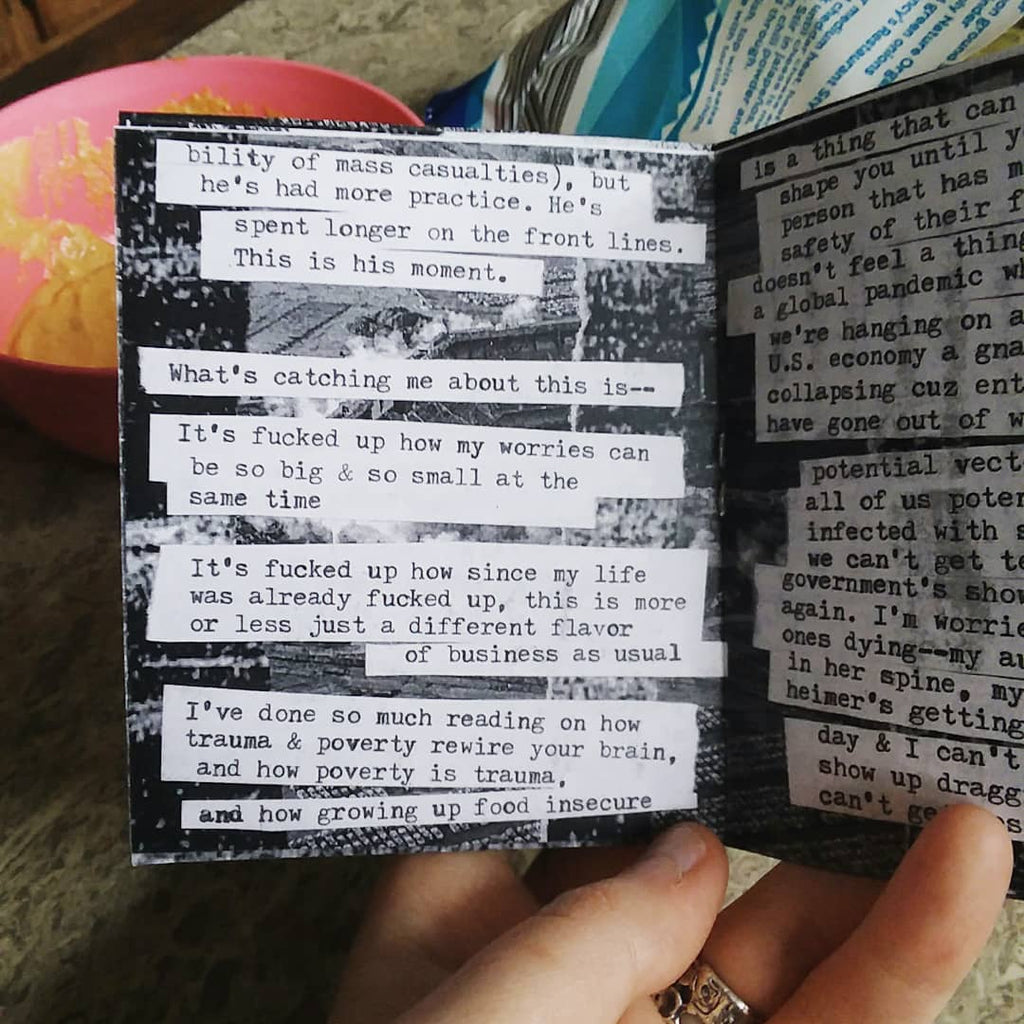 bility of mass casualties), but
he's had more practice. He's
spent longer on the front lines.
This is his moment.
What's catching me about this is--
It's fucked up how my worries can
be so big & so small at the
same time
It's fucked up how since my life
was already fucked up, this is more
or less just a different flavor
of business as usual
I've done so much reading on how
trauma & poverty rewire your brain,
and how poverty is trauma,
and how growing up food insecure
is a thing that can
shape you until y
person that has m
safety of their f
doesn't feel a thing
a global pandemic wh
we're hanging on a
U.S. economy a gna
collapsing cuz ent
have gone out of w
potential vect
all of us poten
infected with s
we can't get te
government's show
again. I'm worrie
ones dying--my au
in her spine, my
heimer's getting
day & I can't
show up dragg
can't ge